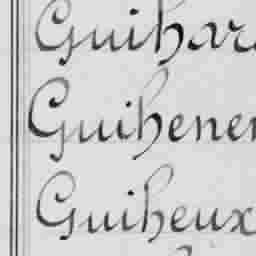 Guihar
Guihener
Guiheux